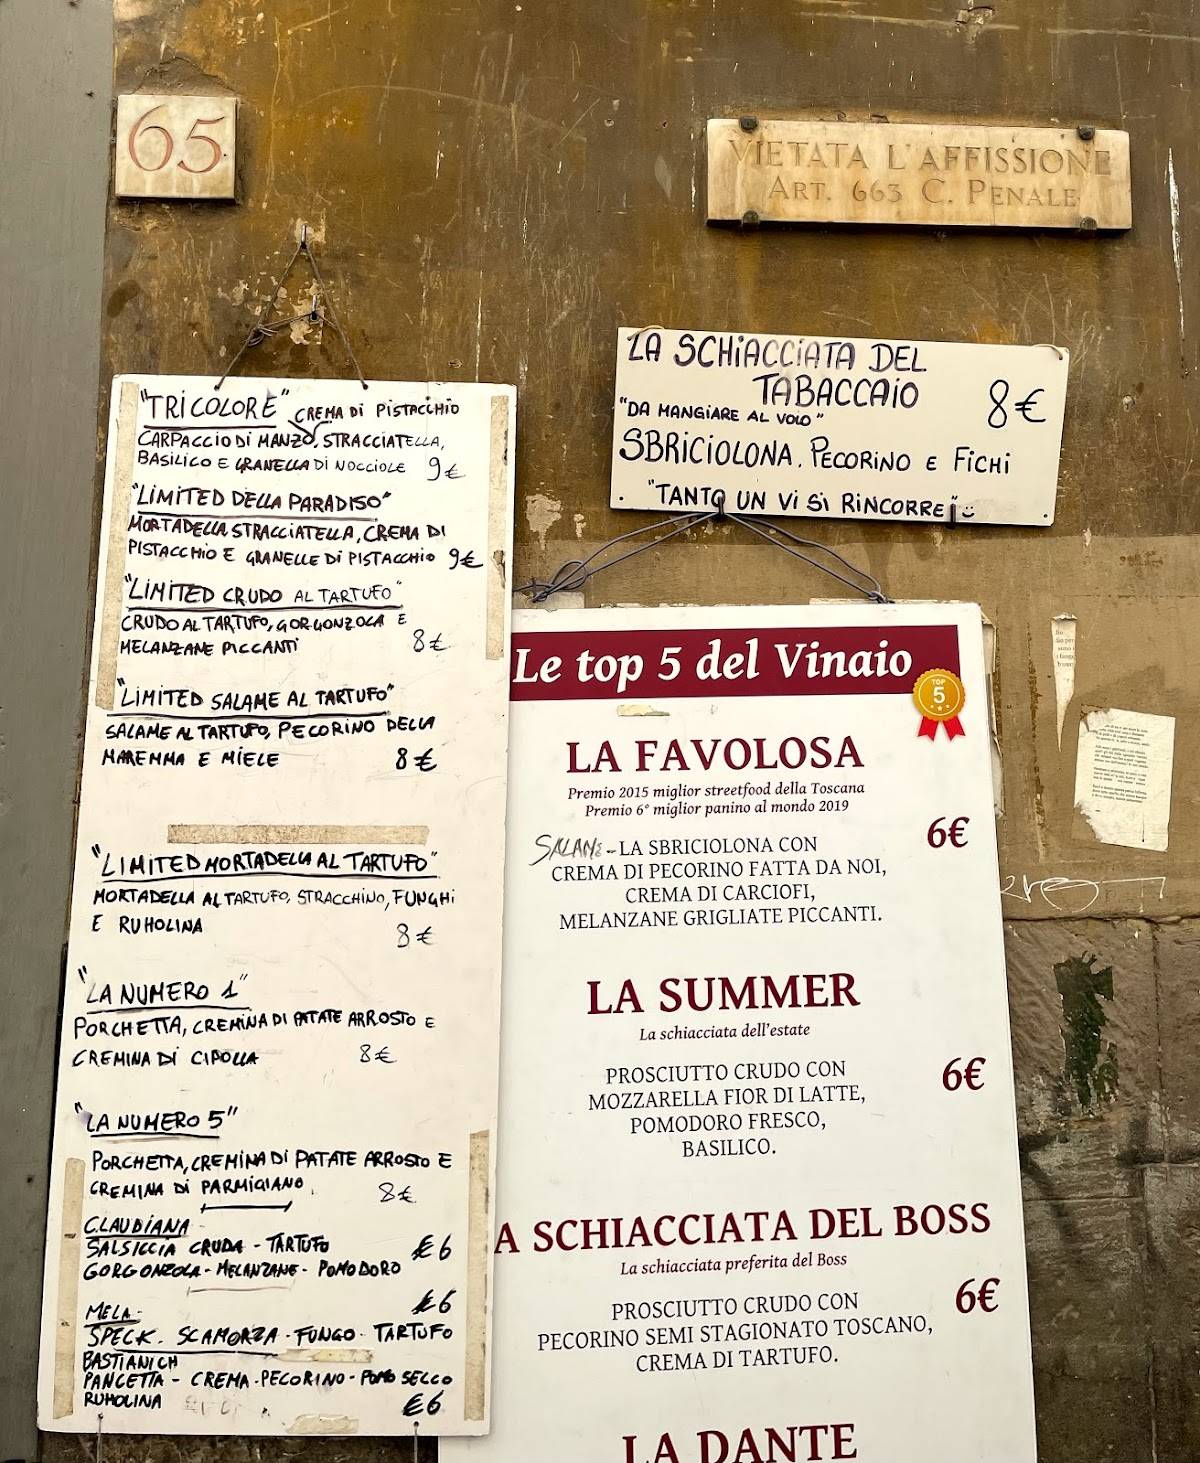 65
VIETATA L'AFFISSIONE
ART. 663 C. PENALE
LA SCHIACCIATA DEL
TABACCAIO
8€
"DA MANGIARE AL VOLO"
SBRICIOLONA. PECORINO E FICHI
"TANTO UN VI SI RINCORRE"
"TRICOLORE" CREMA DI PISTACCHIO
CARPACCIO DI MANZO. STRACCIATELLA,
BASILICO E GRANELLA DI NOCCIOLE 9€
"LIMITED DELLA PARADISO"
MORTADELLA STRACCIATELLA, CREMA DI
PISTACCHIO E GRANELLE DI PISTACCHIO 9€
"LIMITED CRUDO AL TARTUFO"
CRUDO AL TARTUFO, GORGONZOLA E
MELANZANE PICCANTI 8€
"LIMITED SALAME AL TARTUFO"
SALAME AL TARTUFO, PECORINO DELLA
MAREMMA E MIELE 8€
"LIMITED MORTADELLA AL TARTUFO"
MORTADELLA AL TARTUFO, STRACCHINO, FUNGHI
E RUHOLINA 8€
"LA NUMERO 1"
PORCHETTA, CREMINA DI PATATE ARROSTO E
CREMINA DI CIPOLLA 8€
"LA NUMERO 5"
PORCHETTA, CREMINA DI PATATE ARROSTO E
CREMINA DI PARMIGIANO 8€
CLAUDIANA
SALSICCIA CRUDA - TARTUFO €6
GORGONZOLA - MELANZANE - POMODORO
MELA- €6
SPECK. SCAMORZA - FUNGO - TARTUFO
BASTIANICH
PANCETTA - CREMA - PECORINO - POMO SECCO
RUHOLINA €6
Le top 5 del Vinaio
TOP
5
LA FAVOLOSA
Premio 2015 miglior streetfood della Toscana
Premio 6° miglior panino al mondo 2019
6€
SALAME - LA SBRICIOLONA CON
CREMA DI PECORINO FATTA DA NOI,
CREMA DI CARCIOFI,
MELANZANE GRIGLIATE PICCANTI.
LA SUMMER
La schiacciata dell'estate
6€
PROSCIUTTO CRUDO CON
MOZZARELLA FIOR DI LATTE,
POMODORO FRESCO,
BASILICO.
A SCHIACCIATA DEL BOSS
La schiacciata preferita del Boss
6€
PROSCIUTTO CRUDO CON
PECORINO SEMI STAGIONATO TOSCANO,
CREMA DI TARTUFO.
LA DANTE